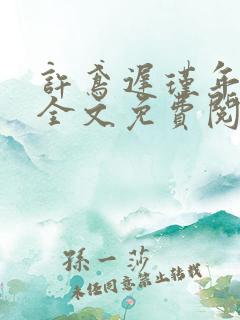 許鳶遲瑾年
全文免費閱
孫一莎
未经同意禁止转载